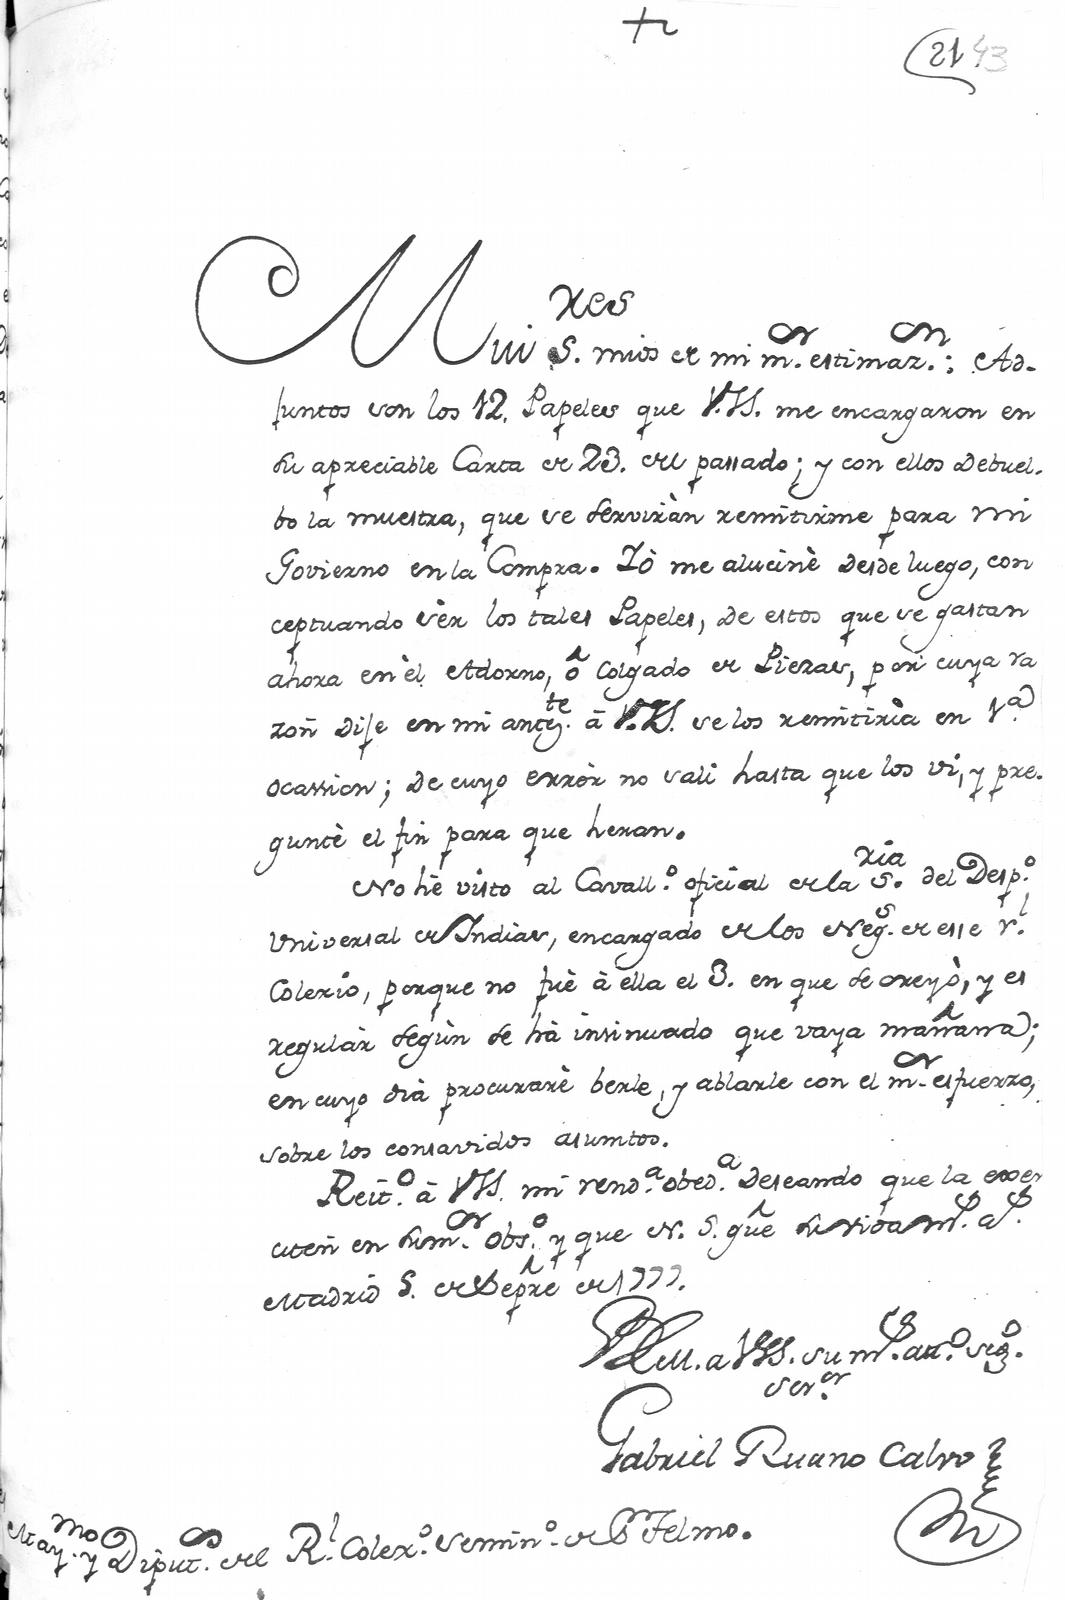 +
21 43
Mui S.res mios de mi m.or estimaz.on: Ad-
juntos son los 12. Papeles que V.SS. me encargaron en
su apreciable Carta de 23. del passado; y con ellos debuel-
bo la muestra, que se serviràn remitirme para mi
Govierno en la Compra. Iò me alucinè desde luego, con
ceptuando sèr los tales Papeles, de estos que se gastan
ahora en èl Adorno, ô Colgado de Piezas, por cuya ra
zoñ dije en mi antez.te â V.SS. se los remitirìa en 1.a
ocassion; de cuyo erròr no salì hasta que los vi, y pre-
guntè el fin para que heran.
No hè visto al Cavall.o oficial de la S.ria del Desp.o
Universal de Indias, encargado de los Neg.s de esse R.l
Colexio, porque no fuè à ella el 3. en que se creyò, y es
regulàr segùn se hà insinuado que vaya mañana;
en cuyo dià procurarè berle, y ablarle con el m.or esfuerzo,
sobre los consavidos asumtos.
Reit.o à VSS. mi rend.a obed.a deseando que la exer
citeñ en su m.or obs.o y que N. S. gûe su vida m.s a.s
Madrid 5. de Sepre de 1777.
BLM. a VSS. su m.s att.o seg.o
ser.or
Gabriel Ruano Calvo
May.mo y Diput.s del R.l Colex.o Semin.o de S.n Telmo.